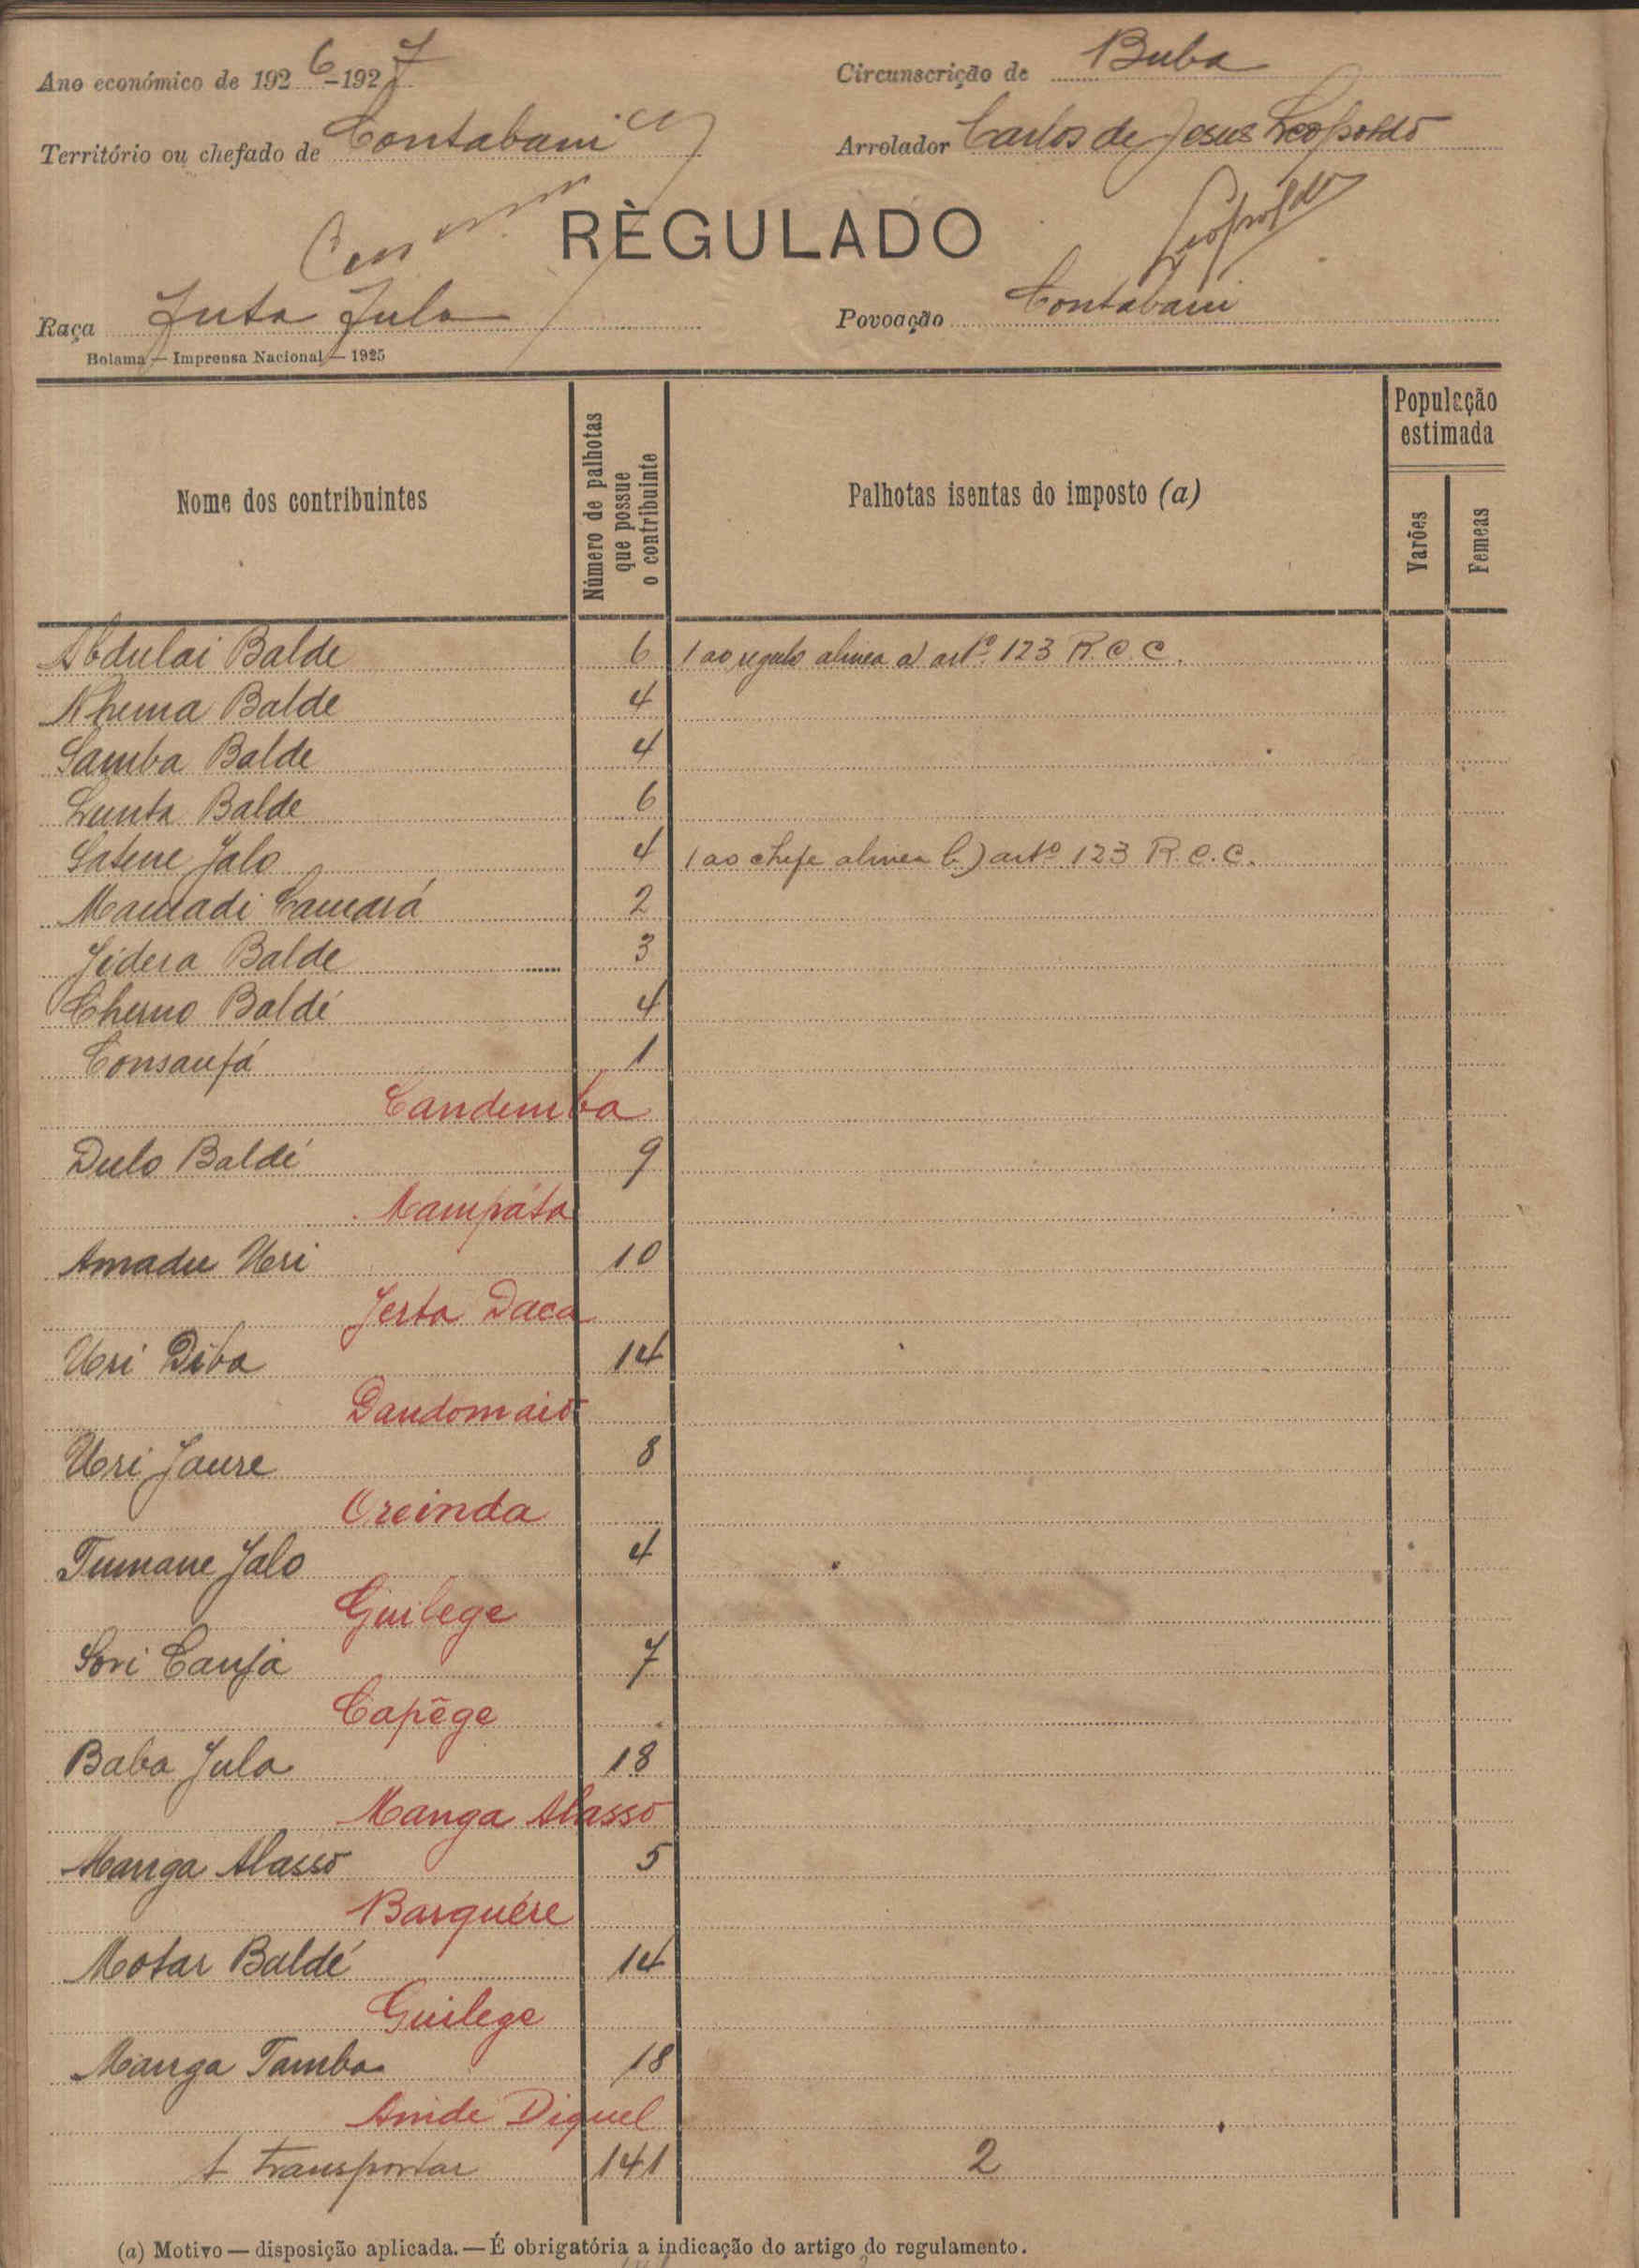 Ano económico de 1926-1927
Circunscrição de Buba
Território ou chefado de Contabani
Arrolador Carlos de Jesus Leopoldo
RÈGULADO
Leopoldo
Raça Futa Fula
Povoação Contabani
Bolama — Imprensa Nacional — 1925
Nome dos contribuintes
Número de palhotas que possue o contribuinte
Palhotas isentas do imposto (a)
População estimada
Varões
Femeas
Abdulai Balde 6 1 ao regulo alinea a) artº 123 R. C. C.
Balde 4
Samba Balde 4
Balde 6
Satene Jalo 4 1 ao chefe alinea b) artº 123 R. C. C.
Mamadi Camará 2
Jidera Balde 3
Cherno Baldé 4
Consanfá 1
Candemba
Dulo Baldé 9
Mampáta
Amadu Uri 10
Jerta Daca
Uri Diba 14
Dandomaio
Uri Jaure 8
Oreinda
Tumane Jalo 4
Guilege
Sori Canja 7
Capêge
Baba Jula 18
Manga Alasso
Manga Alasso 5
Barquére
Motar Baldé 14
Guilege
Manga Tamba 18
Anide Diquel
A transportar 141 2
(a) Motivo — disposição aplicada. — É obrigatória a indicação do artigo do regulamento.